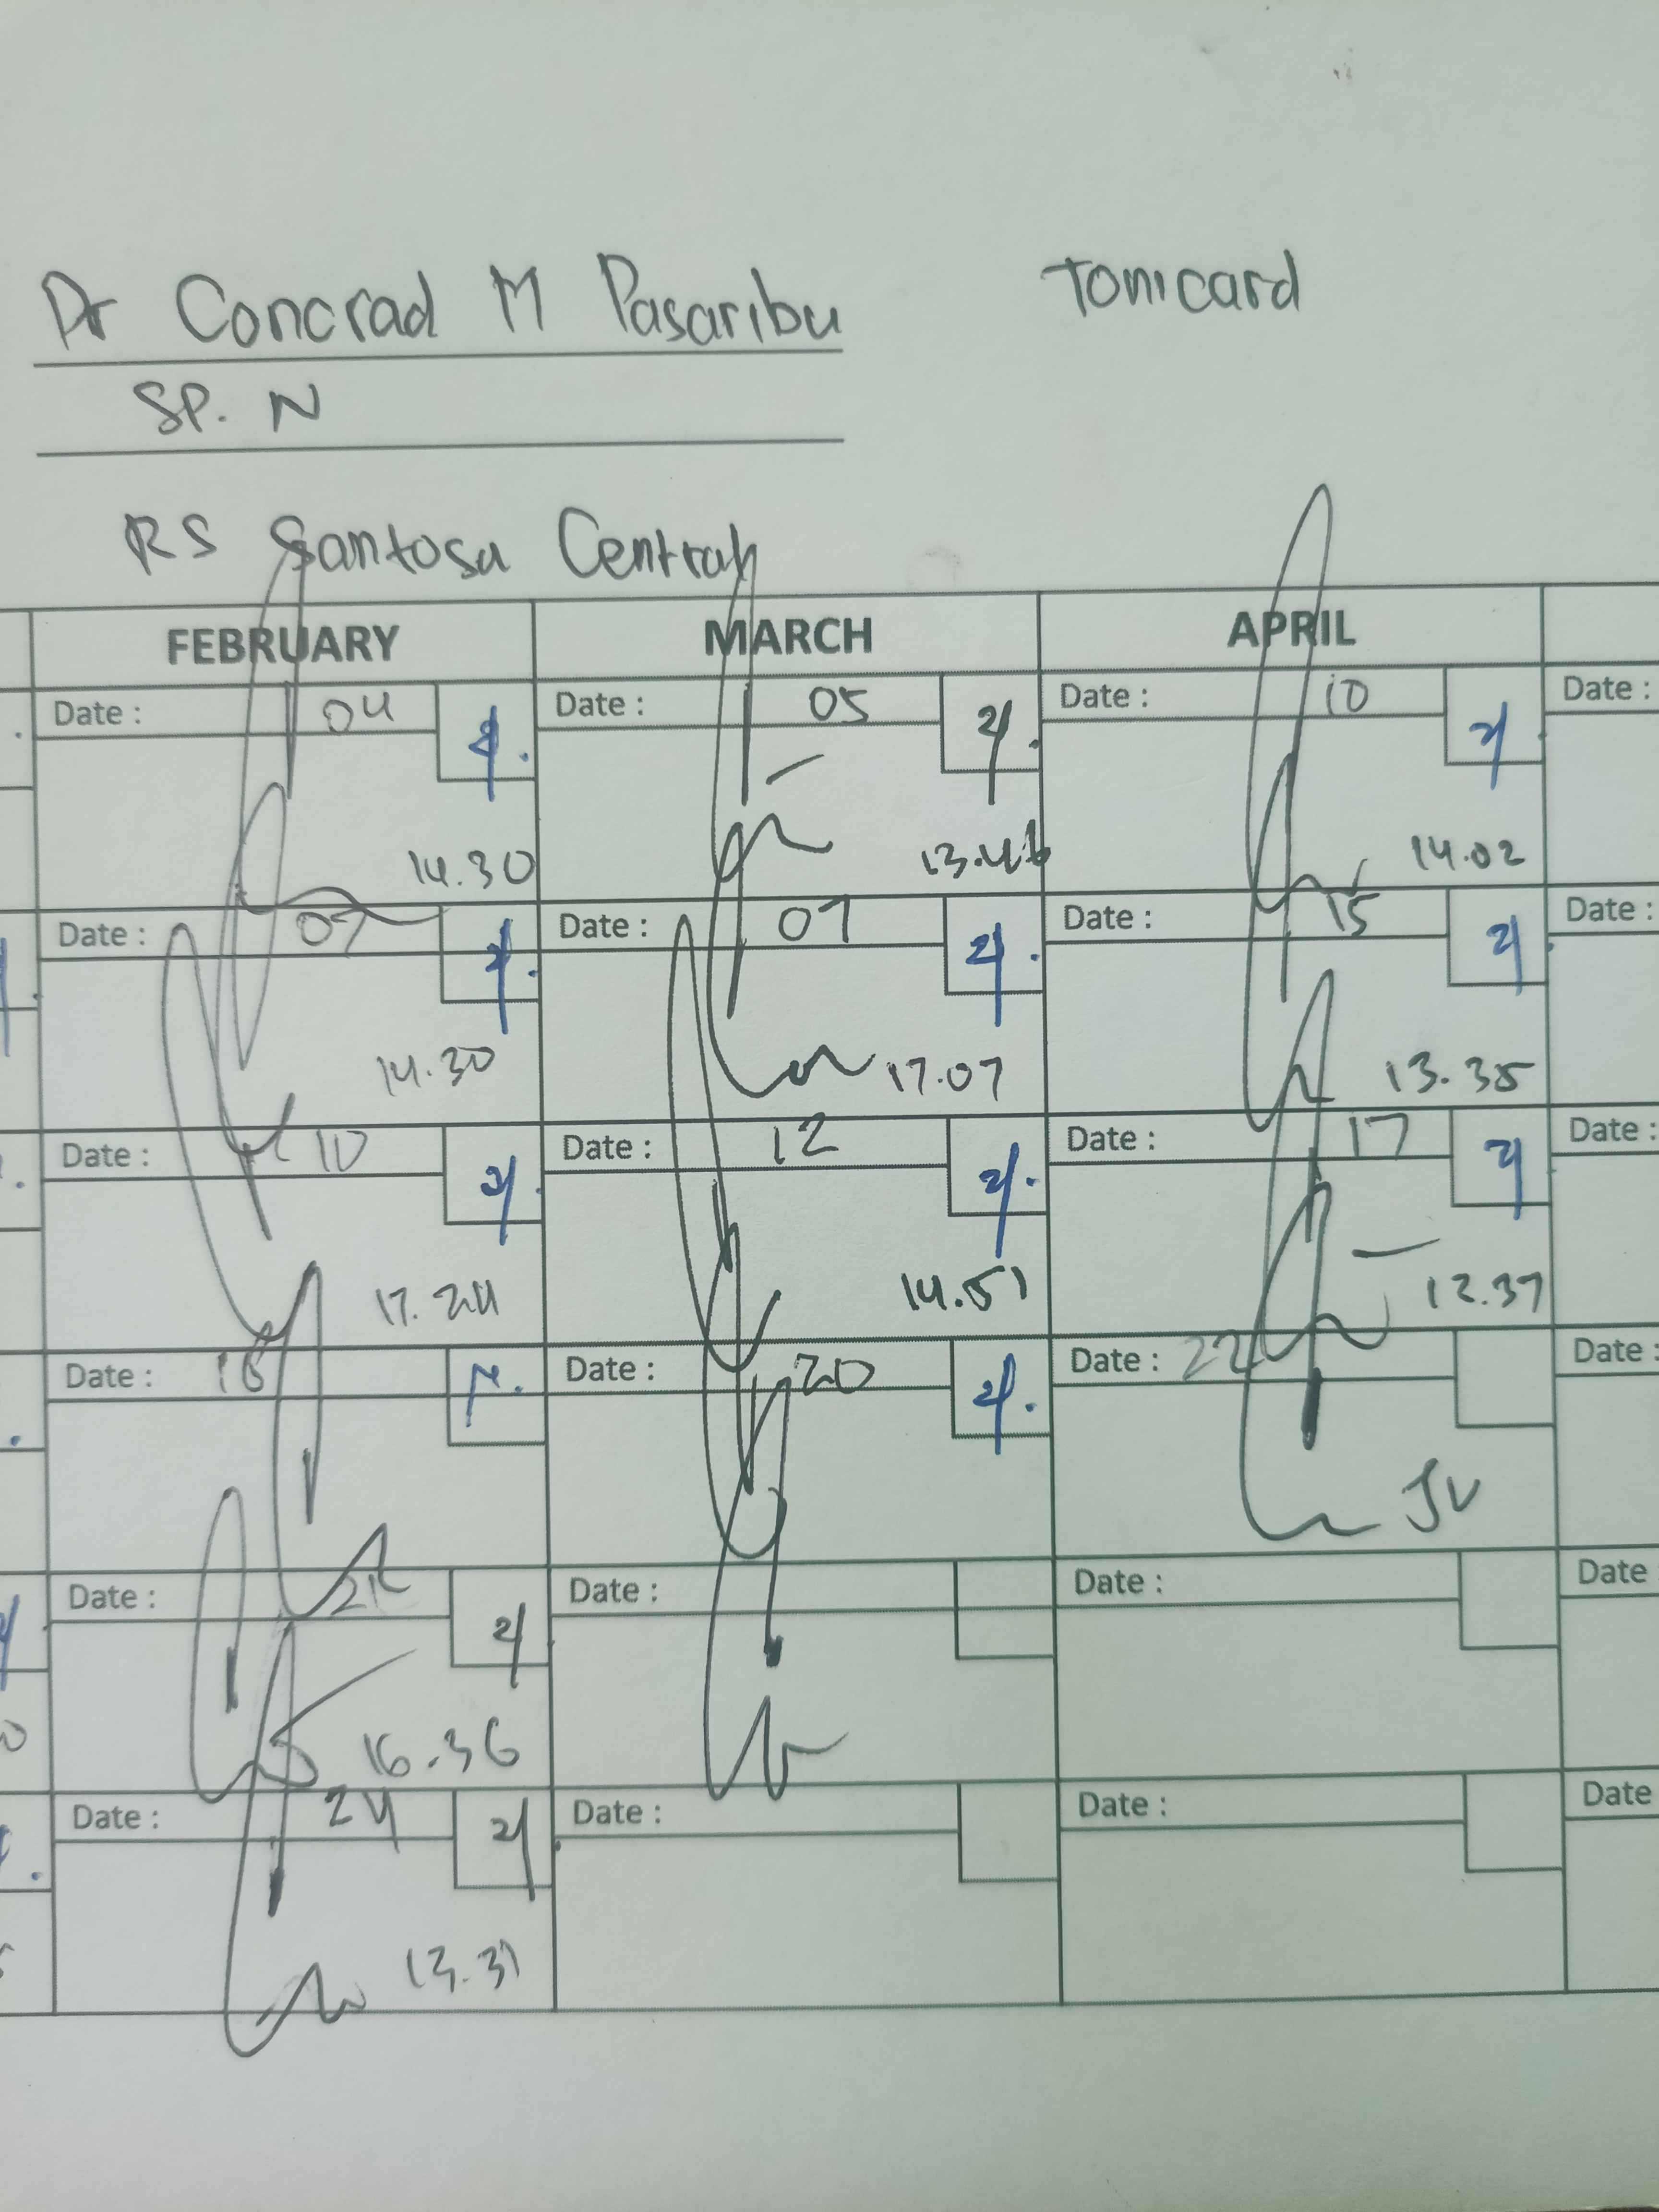 Dr Concrad M Pasaribu
Tonicard
SP. N
RS Santosa Central
FEBRUARY MARCH APRIL
Date : 04 Date : 05 Date : 10 Date :
14.30 13.46 14.02
Date : 07 Date : 07 Date : 15 Date :
14.30 17.07 13.35
Date : 10 Date : 12 Date : 17 Date :
17.24 14.51 12.37
Date : 18 Date : 20 Date : 22 Date :
JV
Date : 21 Date : Date : Date
16.36
Date : 24 Date : Date : Date
13.31